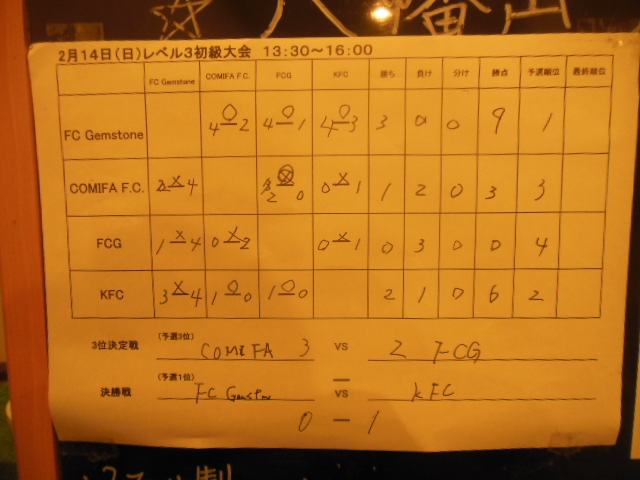 ☆ 八幡山
2月14日(日)レベル3初級大会 13:30～16:00
FC Gemstone COMIFA F.C. FCG KFC 勝ち 負け 分け 勝点 予選順位 最終順位
FC Gemstone 4 ○ー 2 4 ○ー 1 4 ○ー 3 3 0 0 9 1
COMIFA F.C. 2 ×ー 4 2 ー 0 0 ×ー 1 1 2 0 3 3
FCG 1 ×ー 4 0 ×ー 2 0 ×ー 1 0 3 0 0 4
KFC 3 ×ー 4 1 ○ー 0 1 ○ー 0 2 1 0 6 2
3位決定戦 (予選3位) COMIFA 3 VS 2 FCG
決勝戦 (予選1位) FC Gemstone VS KFC
0 ー 1